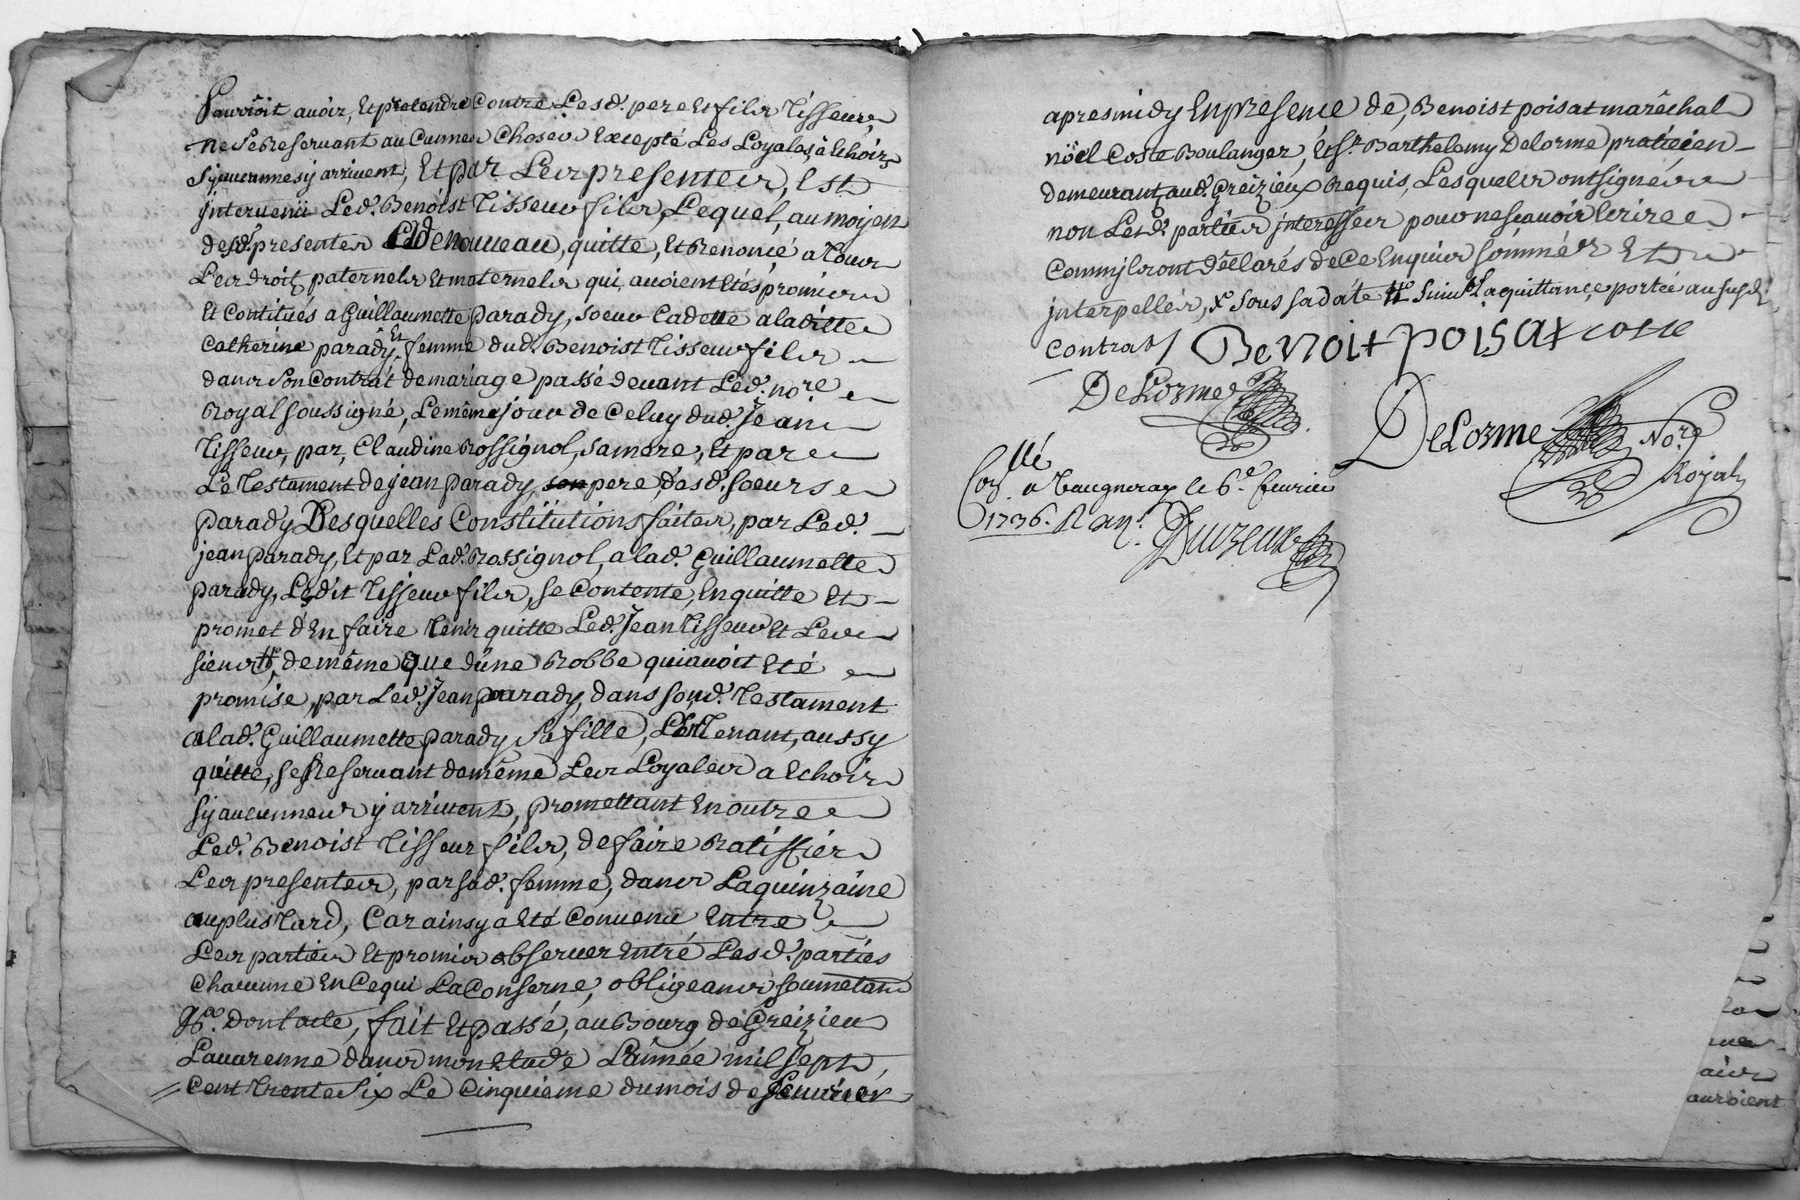 Pourroit avoir, Et pretendre Contre Lesd. pere Et fils Tisseur,
ne se Reservant aucunnes Choses Excepté Les Loyales à Echoir
sy aucunnes y arrivent, Et par Les presentes, Est
jntervenü Led. Benoist Tisseur fils, Lequel, au moyen
desd. presentes a de nouveau, quitté, Et Renoncé a Tous
Les droits paternels Et maternels qui avoient Etés promis
Et Contitués a Guillaumette parady, soeur Cadette a laditte
Catherine parady Et femme dud. Benoist Tisseur fils
dans son Contrat de mariage passé devant Led. nore.
Royal soussigné, Le même jour de Celuy dud. Jean
Tisseur, par, Claudine Rossignol, sa mere, Et par
Le Testament de jean parady, son pere, desd. soeurs
parady Desquelles Constitutions faites, par Led.
jean parady, Et par Lad. Rossignol, a lad. Guillaumette
parady, Ledit Tisseur fils, se Contente, En quitte Et
promet d'En faire Tenir quitte Led. Jean Tisseur Et Les
siens, de même que d'une Robbe qui avoit Eté
promise, par Led. Jean parady, dans sond. Testament
a lad. Guillaumette parady sa fille, L'En Tenant, aussy
quitte, se Reservant de même Les Loyales a Echoir
sy aucunnes y arrivent, promettant En outre
Led. Benoist Tisseur fils, de faire Ratiffier
Les presentes, par sad. femme, dans La quinzaine
au plus Tard, Car ainsy a Eté Convenu Entre
Les parties Et promis observer Entré Lesd. parties
chacunne En Ce qui La Conserne, obligeans soumetans
&a. dont acte, fait Et passé, au Bourg de Greizieu
Lavarenne dans mon Etude L'année mil sept
Cent Trente Six Le Cinquieme du mois de fevrier
apresmidy En presence de, Benoist poisat maréchal
nöel Coste Boulanger, Et sr. Barthelemy Delorme pratiçien
demeurant aud. Greizieux Requis, Lesquels ont signé
non Lesd. parties jnteressés pour ne sçavoir Ecrire
Comm'jls ont déclarés de Ce Enquis sommés Et
jnterpellés, sous sa date La quittançe portée au susd.
Contrat / Benoit poisat coste
DeLorme
DeLorme Nore
Royal
Collé
a vaugneray le 6e. fevrier
1736.